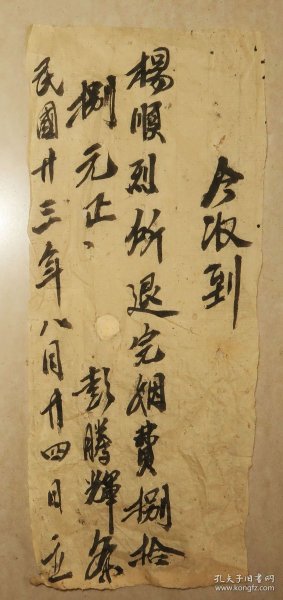 今收到
楊順烈所退完姻費捌拾
捌元正、 彭騰輝条
民國廿三年八月廿四日立
孔夫子旧书网
www.kongfz.com